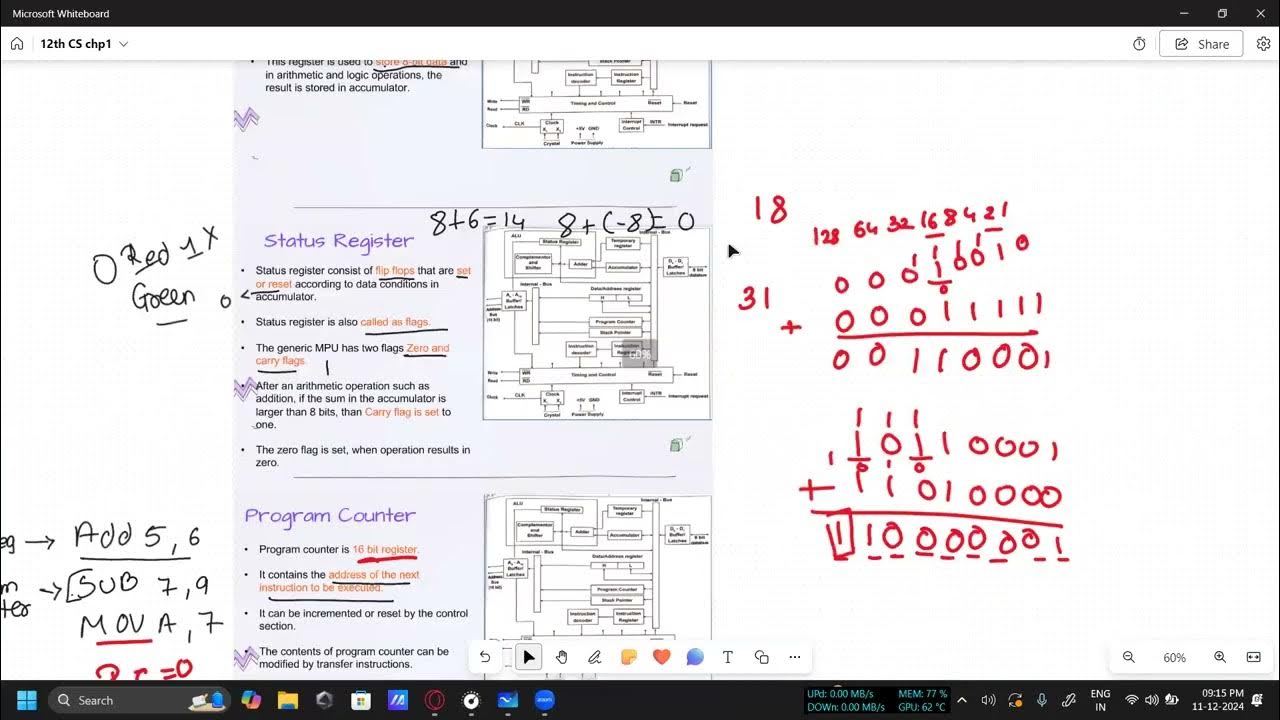 Microsoft Whiteboard
12th CS chp1
Share
• This register is used to store 8-bit data and
in arithmetic and logic operations, the
result is stored in accumulator.
Stack Pointer
Instruction decoder
Instruction Register
Write WR
Read RD
Timing and Control
Reset Reset
Clock CLK
Clock X1 X2
Crystal
+5V GND
Power Supply
Interrupt Control
INTR
Interrupt request
8+6=14 8+(-8)=0
Status Register
• Status register consist of flip flops that are set
or reset according to data conditions in
accumulator.
Status register is also called as flags.
• The generic MPU has two flags Zero and
carry flags.
After an arithmetic operation such as
addition, if the sum in the accumulator is
larger than 8 bits, than Carry flag is set to
one.
• The zero flag is set, when operation results in
zero.
0 Red 1 X
Green 0
ALU
Internal - Bus
Status Register
Temporary register
Complementor and Shifter
Adder
Accumulator
D0 - D7 Buffer/ Latches
8 bit databus
Internal - Bus
Data/Address register
H L
A0 - A15 Buffer/ Latches
Address Bus (16 bit)
Program Counter
Stack Pointer
Instruction decoder
Instruction Register
60%
Write WR
Read RD
Timing and Control
Reset Reset
Clock CLK
Clock X1 X2
Crystal
+5V GND
Power Supply
Interrupt Control
INTR
Interrupt request
18
128 64 32 16 8 4 2 1
1 1
0 0 0 1 0 0 1 0
0
31
+ 0 0 0 1 1 1 1 1
0 0 1 1 0 0 0 1
1 1 1
1 1 0 1 1 0 0 0 1
0 0
+ 1 1 0 1 0 0 0 0
1 1 0 0 0 0 0 0 1
Program Counter
• Program counter is 16 bit register.
• It contains the address of the next
instruction to be executed.
• It can be incremented or reset by the control
section.
• The contents of program counter can be
modified by transfer instructions.
→ Add 5, 6
→ SUB 7,9
MOV A, 7
=0
ALU
Internal - Bus
Status Register
Temporary register
Complementor and Shifter
Adder
Accumulator
D0 - D7 Buffer/ Latches
8 bit databus
Internal - Bus
Data/Address register
H L
A0 - A15 Buffer/ Latches
Address Bus (16 bit)
Program Counter
Stack Pointer
Instruction decoder
Instruction Register
T
60%
Search
zoom
UPd: 0.00 MB/s MEM: 77 %
DOWn: 0.00 MB/s GPU: 62 °C
ENG
IN
09:15 PM
11-12-2024